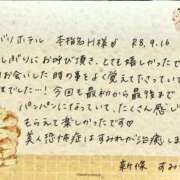 バリホテル 本指名H様♂ R8.9.16
しぶりにお呼び頂き、とても嬉しかったで
お会いした時の事をよく覚えて下さってい
てました…！今回も最初から最後まで
パンパンになっていて、たくさん感じ
もらえて楽しかったです
美人恐怖症はすみれが治癒しま
新保 すみ